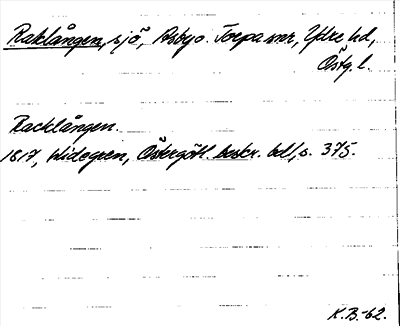 Raklången, sjö, Asby o. Torpa snr, Ydre hd,
Östg. l.
Racklången.
1817, Widegren, Östergötl. beskr. bd 1, s. 375.
K.B.-62.